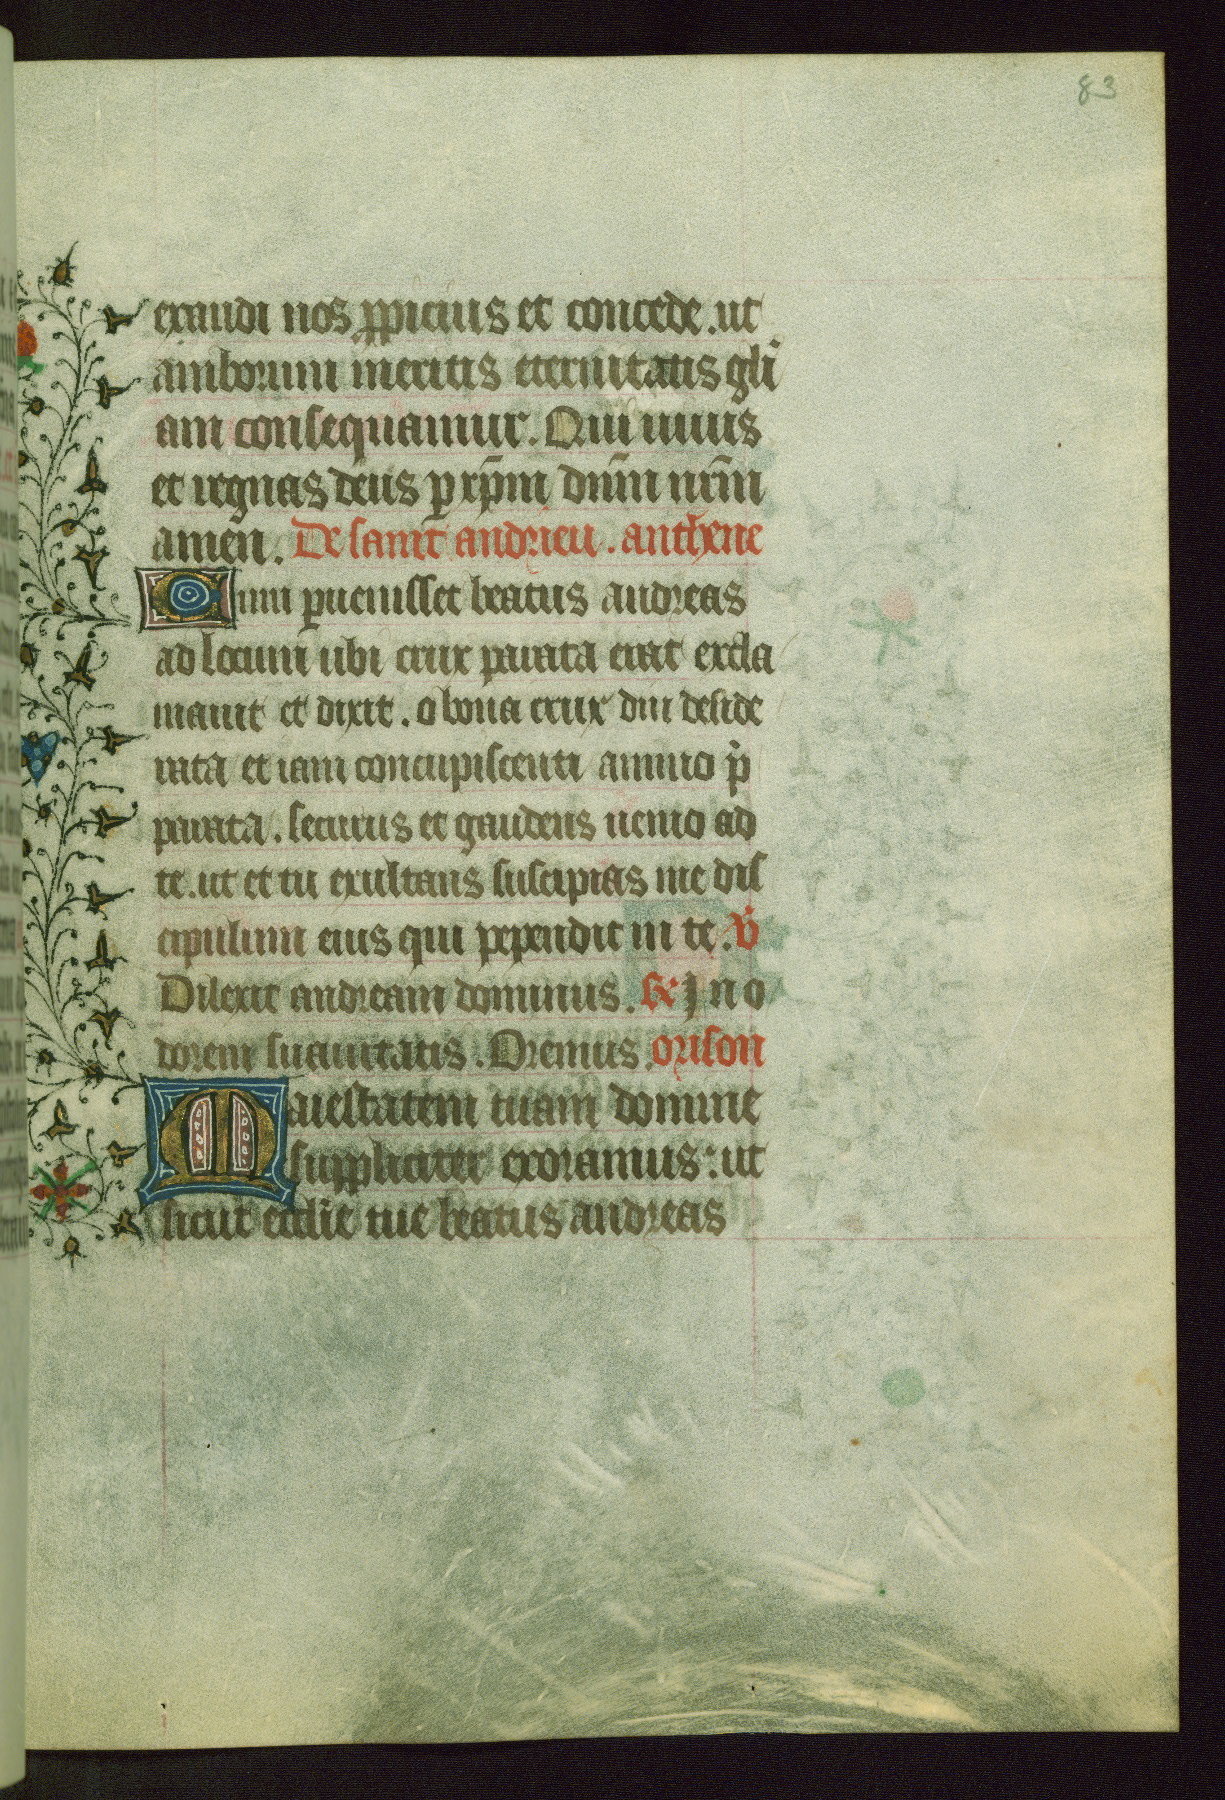 83
exaudi nos ꝓpicius et concede . ut
amborum meritis eternitatis gl̄i
am consequamur . Qui uiuis
et regnas deus ꝑ xp̄m dn̄m nr̄m
amen . De saint andrieu . anthene
Cum ꝑuenisset beatus andreas
ad locum ubi crux parata erat excla
mauit et dixit . o bona crux diu deside
rata et iam concupiscenti animo p̄
parata . securus et gaudens uenio ad
te . ut et tu exultans suscipias me dis
cipulum eius qui pependit in te . ℣
Dilexit andream dominus . ℟ In o
dorem suauitatis . Oremus . orison
Maiestatem tuam domine
suppliciter exoramus : ut
sicut eccl̄ie tue beatus andreas